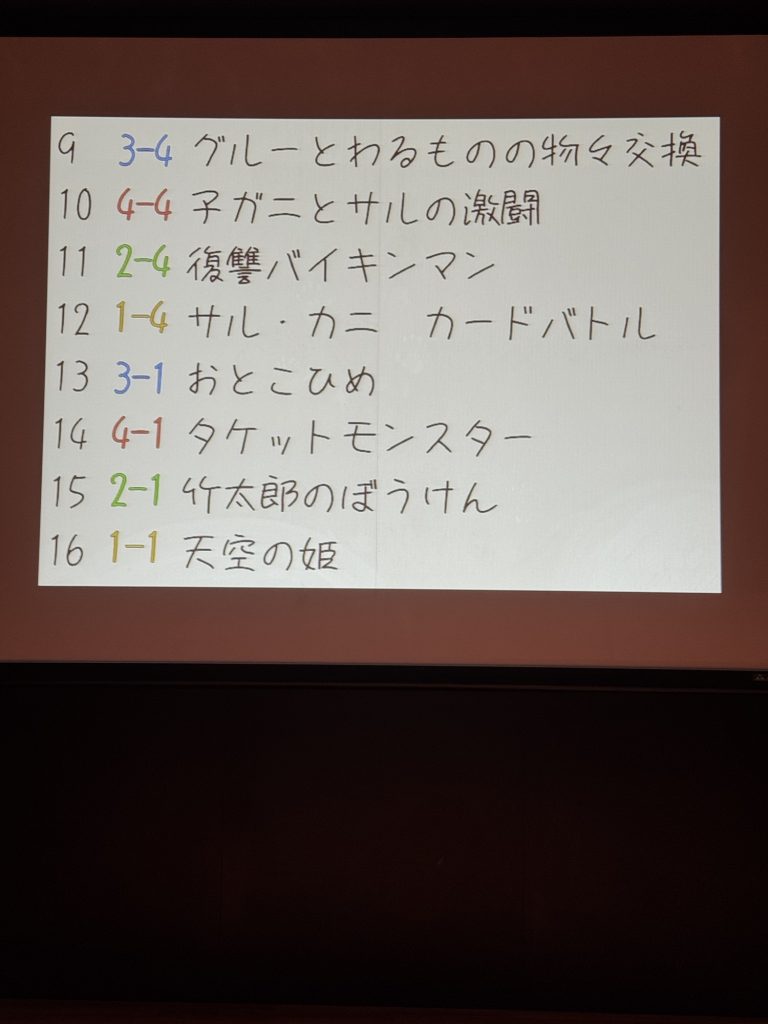 9 3-4 グルーとわるものの物々交換
10 4-4 子ガニとサルの激闘
11 2-4 復讐バイキンマン
12 1-4 サル・カニ　カードバトル
13 3-1 おとこひめ
14 4-1 タケットモンスター
15 2-1 竹太郎のぼうけん
16 1-1 天空の姫